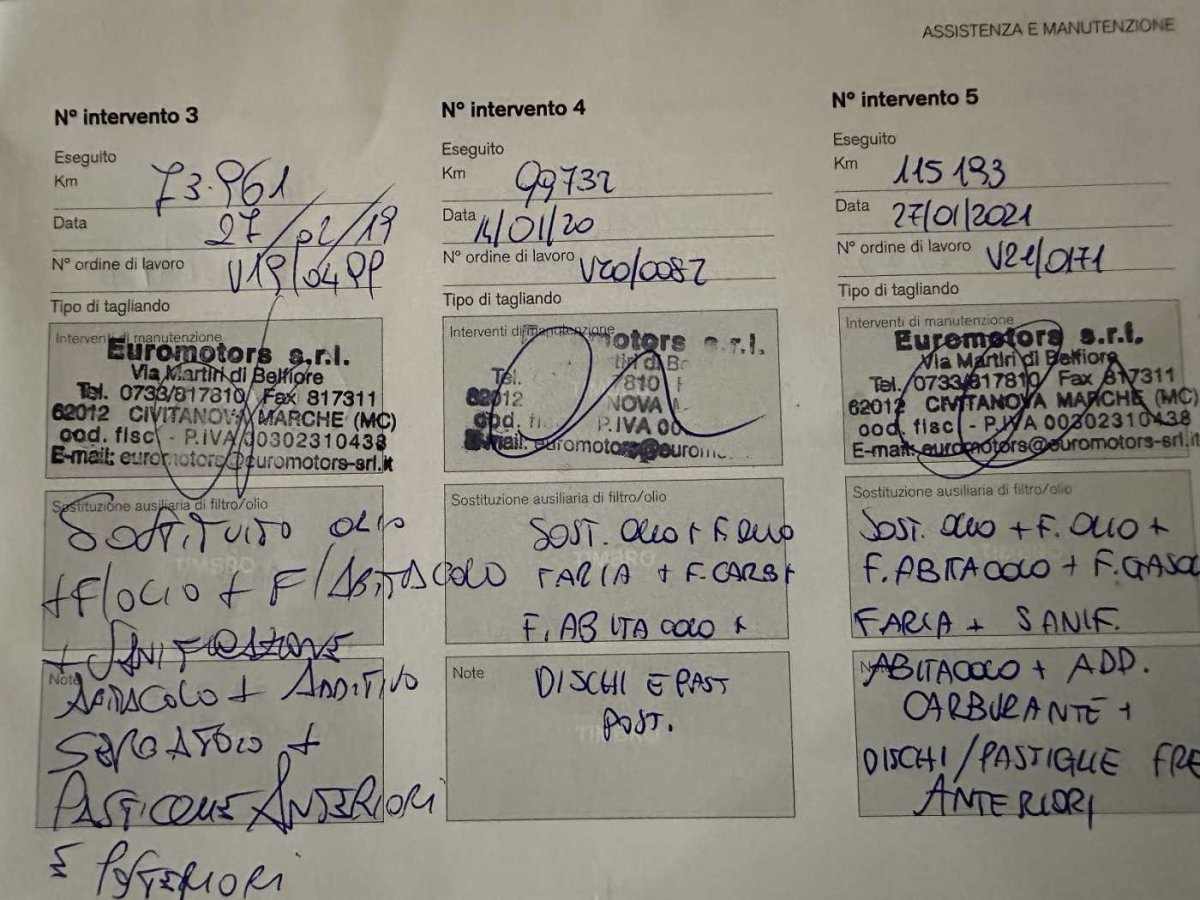 ASSISTENZA E MANUTENZIONE
N° intervento 3
Eseguito
Km 73.961
Data 27/02/19
N° ordine di lavoro V19/0499
Tipo di tagliando
Interventi di manutenzione
Euromotors s.r.l.
Via Martiri di Belfiore
Tel. 0733/817810 Fax 817311
62012 CIVITANOVA MARCHE (MC)
cod. fisc. - P.IVA 00302310438
E-mail: euromotors@euromotors-srl.it
Sostituzione ausiliaria di filtro/olio
SOSTITUITO OLIO
+ F/OLIO + F/ABITACOLO
+ SANIFICAZIONE
Note
ABITACOLO + ADDITIVO
SERBATOIO +
PASTIGLIE ANTERIORI
E POSTERIORI
N° intervento 4
Eseguito
Km 99732
Data 14/01/20
N° ordine di lavoro V20/0082
Tipo di tagliando
Interventi di manutenzione
motors s.r.l.
tiri di Be
Tel. 7810
62012 NOVA
cod. fis P.IVA 00
E-mail: euromotors@eurom
Sostituzione ausiliaria di filtro/olio
SOST. OLIO + F. OLIO
FARIA + F. CARB +
F. ABITACOLO +
Note
DISCHI E PAST
POST.
N° intervento 5
Eseguito
Km 115193
Data 27/01/2021
N° ordine di lavoro V21/0171
Tipo di tagliando
Interventi di manutenzione
Euromotors s.r.l.
Via Martiri di Belfiore
Tel. 0733/817810 Fax 817311
62012 CIVITANOVA MARCHE (MC)
cod. fisc. - P.IVA 00302310438
E-mail: euromotors@euromotors-srl.it
Sostituzione ausiliaria di filtro/olio
SOST. OLIO + F. OLIO +
F. ABITACOLO + F. GASOL
FARIA + SANIF.
ABITACOLO + ADD.
CARBURANTE +
DISCHI/PASTIGLIE FRE
ANTERIORI